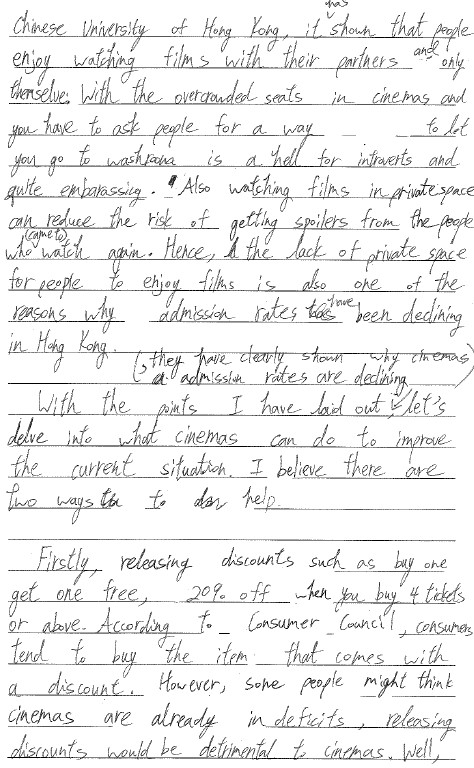 Chinese University of Hong Kong, it has shown that people
enjoy watching films with their partners and only
themselves. With the overcrowded seats in cinemas and
you have to ask people for a way to let
you go to washroom is a hell for introverts and
quite embarassing. Also watching films in private space
can reduce the risk of getting spoilers from the people
who (came to) watch again. Hence, the lack of private space
for people to enjoy films is also one of the
reasons why admission rates have been declining
in Hong Kong.
(they have clearly shown why cinemas
admission rates are declining)
With the points I have laid out, let's
delve into what cinemas can do to improve
the current situation. I believe there are
two ways to help.
Firstly, releasing discounts such as buy one
get one free, 20% off when you buy 4 tickets
or above. According to Consumer Council, consumers
tend to buy the item that comes with
a discount. However, some people might think
cinemas are already in deficits, releasing
discounts would be detrimental to cinemas. Well,